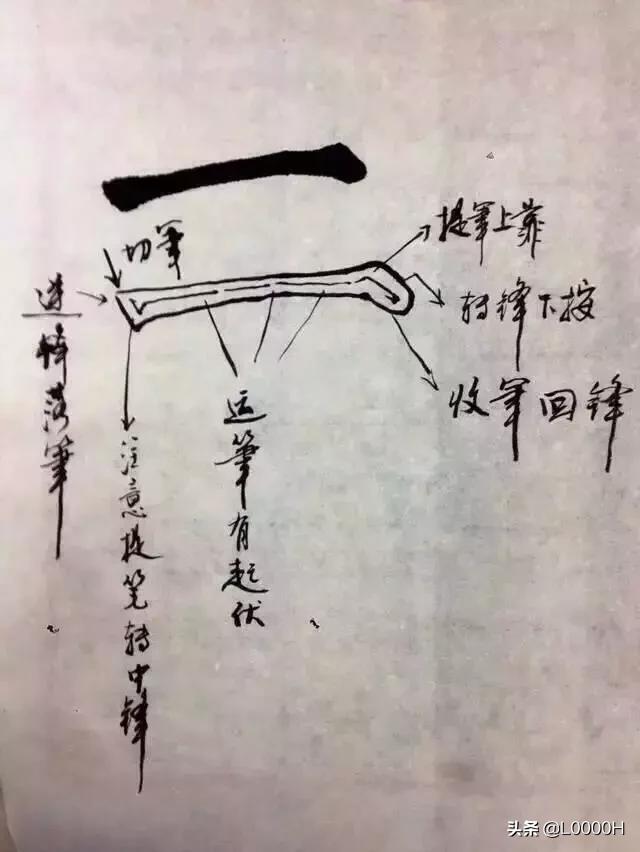 一
切筆
逆锋落筆
注意提笔转中锋
运筆有起伏
提筆上靠
转锋下按
收筆回锋
头条 @L0000H